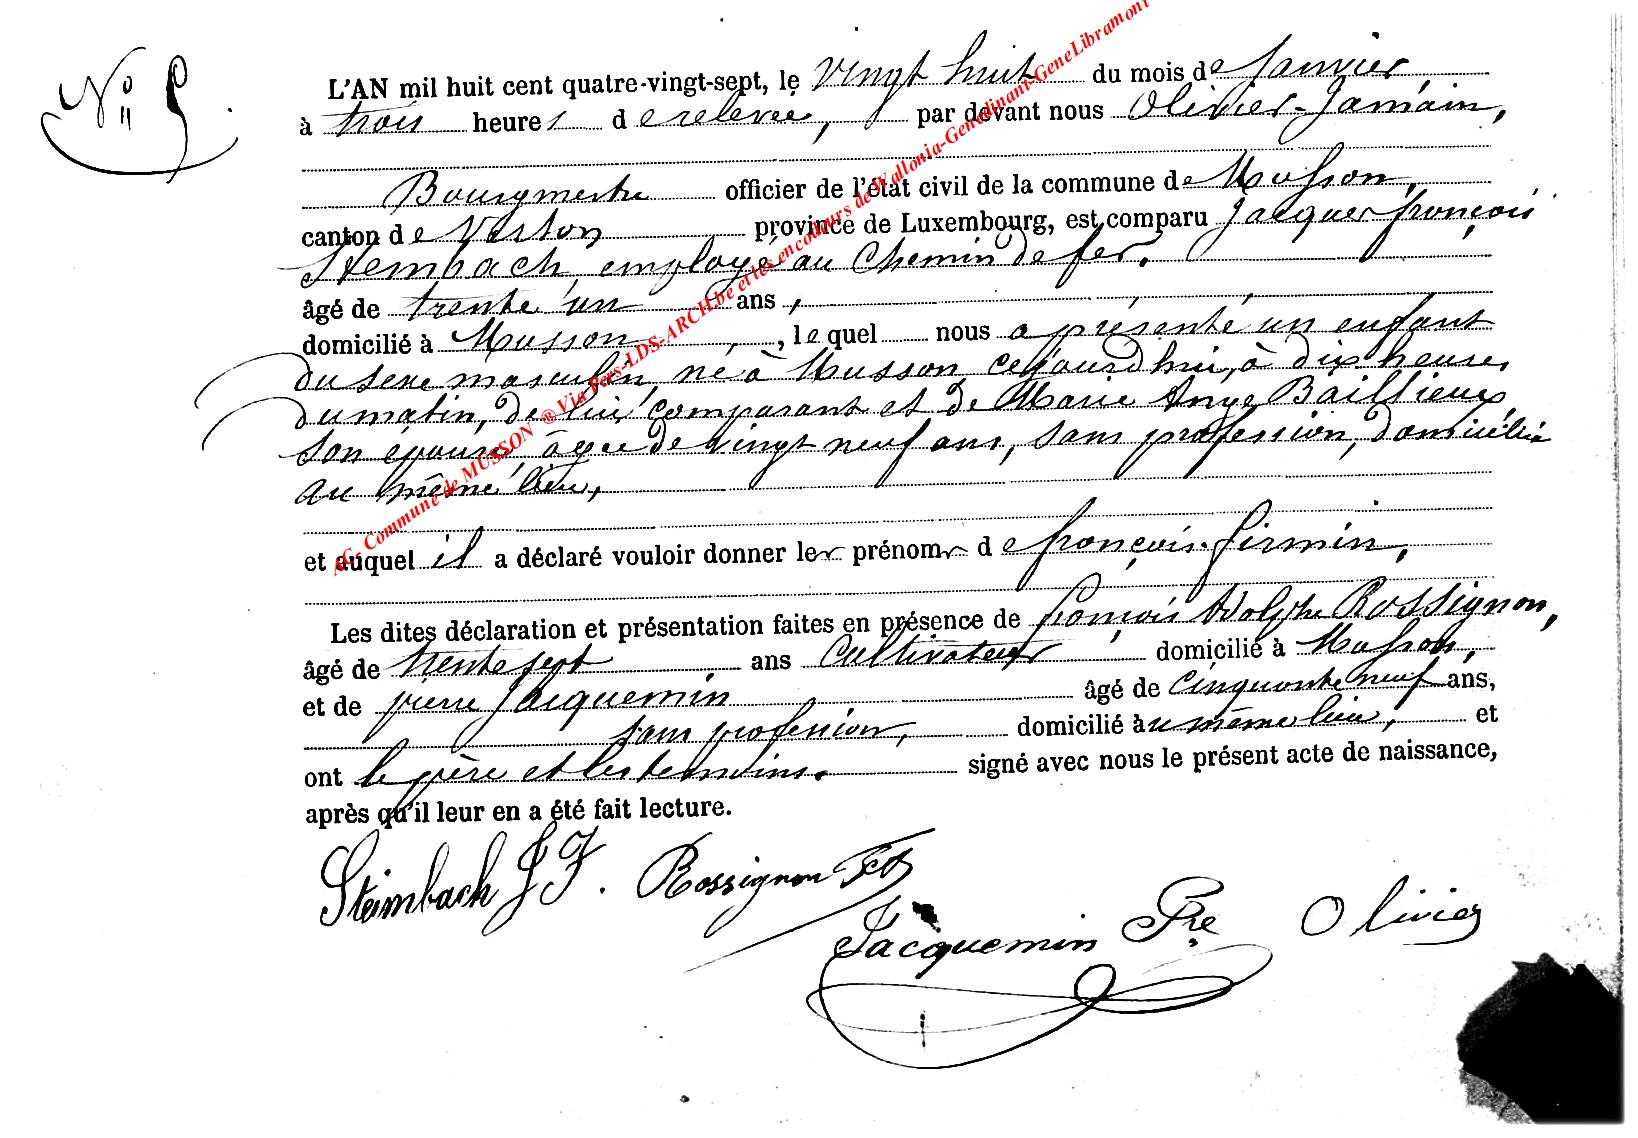 N° 5.
L'AN mil huit cent quatre-vingt-sept, le vingt huit du mois de Janvier
à trois heures de relevée, par devant nous Olivier-Jamain,
Bourgmestre officier de l'état civil de la commune de Musson,
canton de Virton province de Luxembourg, est comparu Jacques françois
Steimbach, employé au Chemin de fer.
âgé de trente un ans,
domicilié à Musson, lequel nous a présenté un enfant
du sexe masculin, né à Musson cejourd'hui, à dix heures
du matin, de lui comparant et de Marie Ange Baillieux
son épouse, âgée de vingt neuf ans, sans profession, domiciliée
au même lieu,
et auquel il a déclaré vouloir donner les prénoms de françois firmin,
Les dites déclaration et présentation faites en présence de françois Adolphe Rossignon,
âgé de trente sept ans Cultivateur domicilié à Musson,
et de pierre Jacquemin âgé de Cinquante neuf ans,
sans profession, domicilié au même lieu, et
ont le père et les temoins. signé avec nous le présent acte de naissance,
après qu'il leur en a été fait lecture.
Steimbach J F. Rossignon
Jacquemin Pre Olivier
AG- Commune de MUSSON ® Via Pers-LDS-ARCH.be et les encodeurs de Wallonia-Genedinant-GeneLibramont